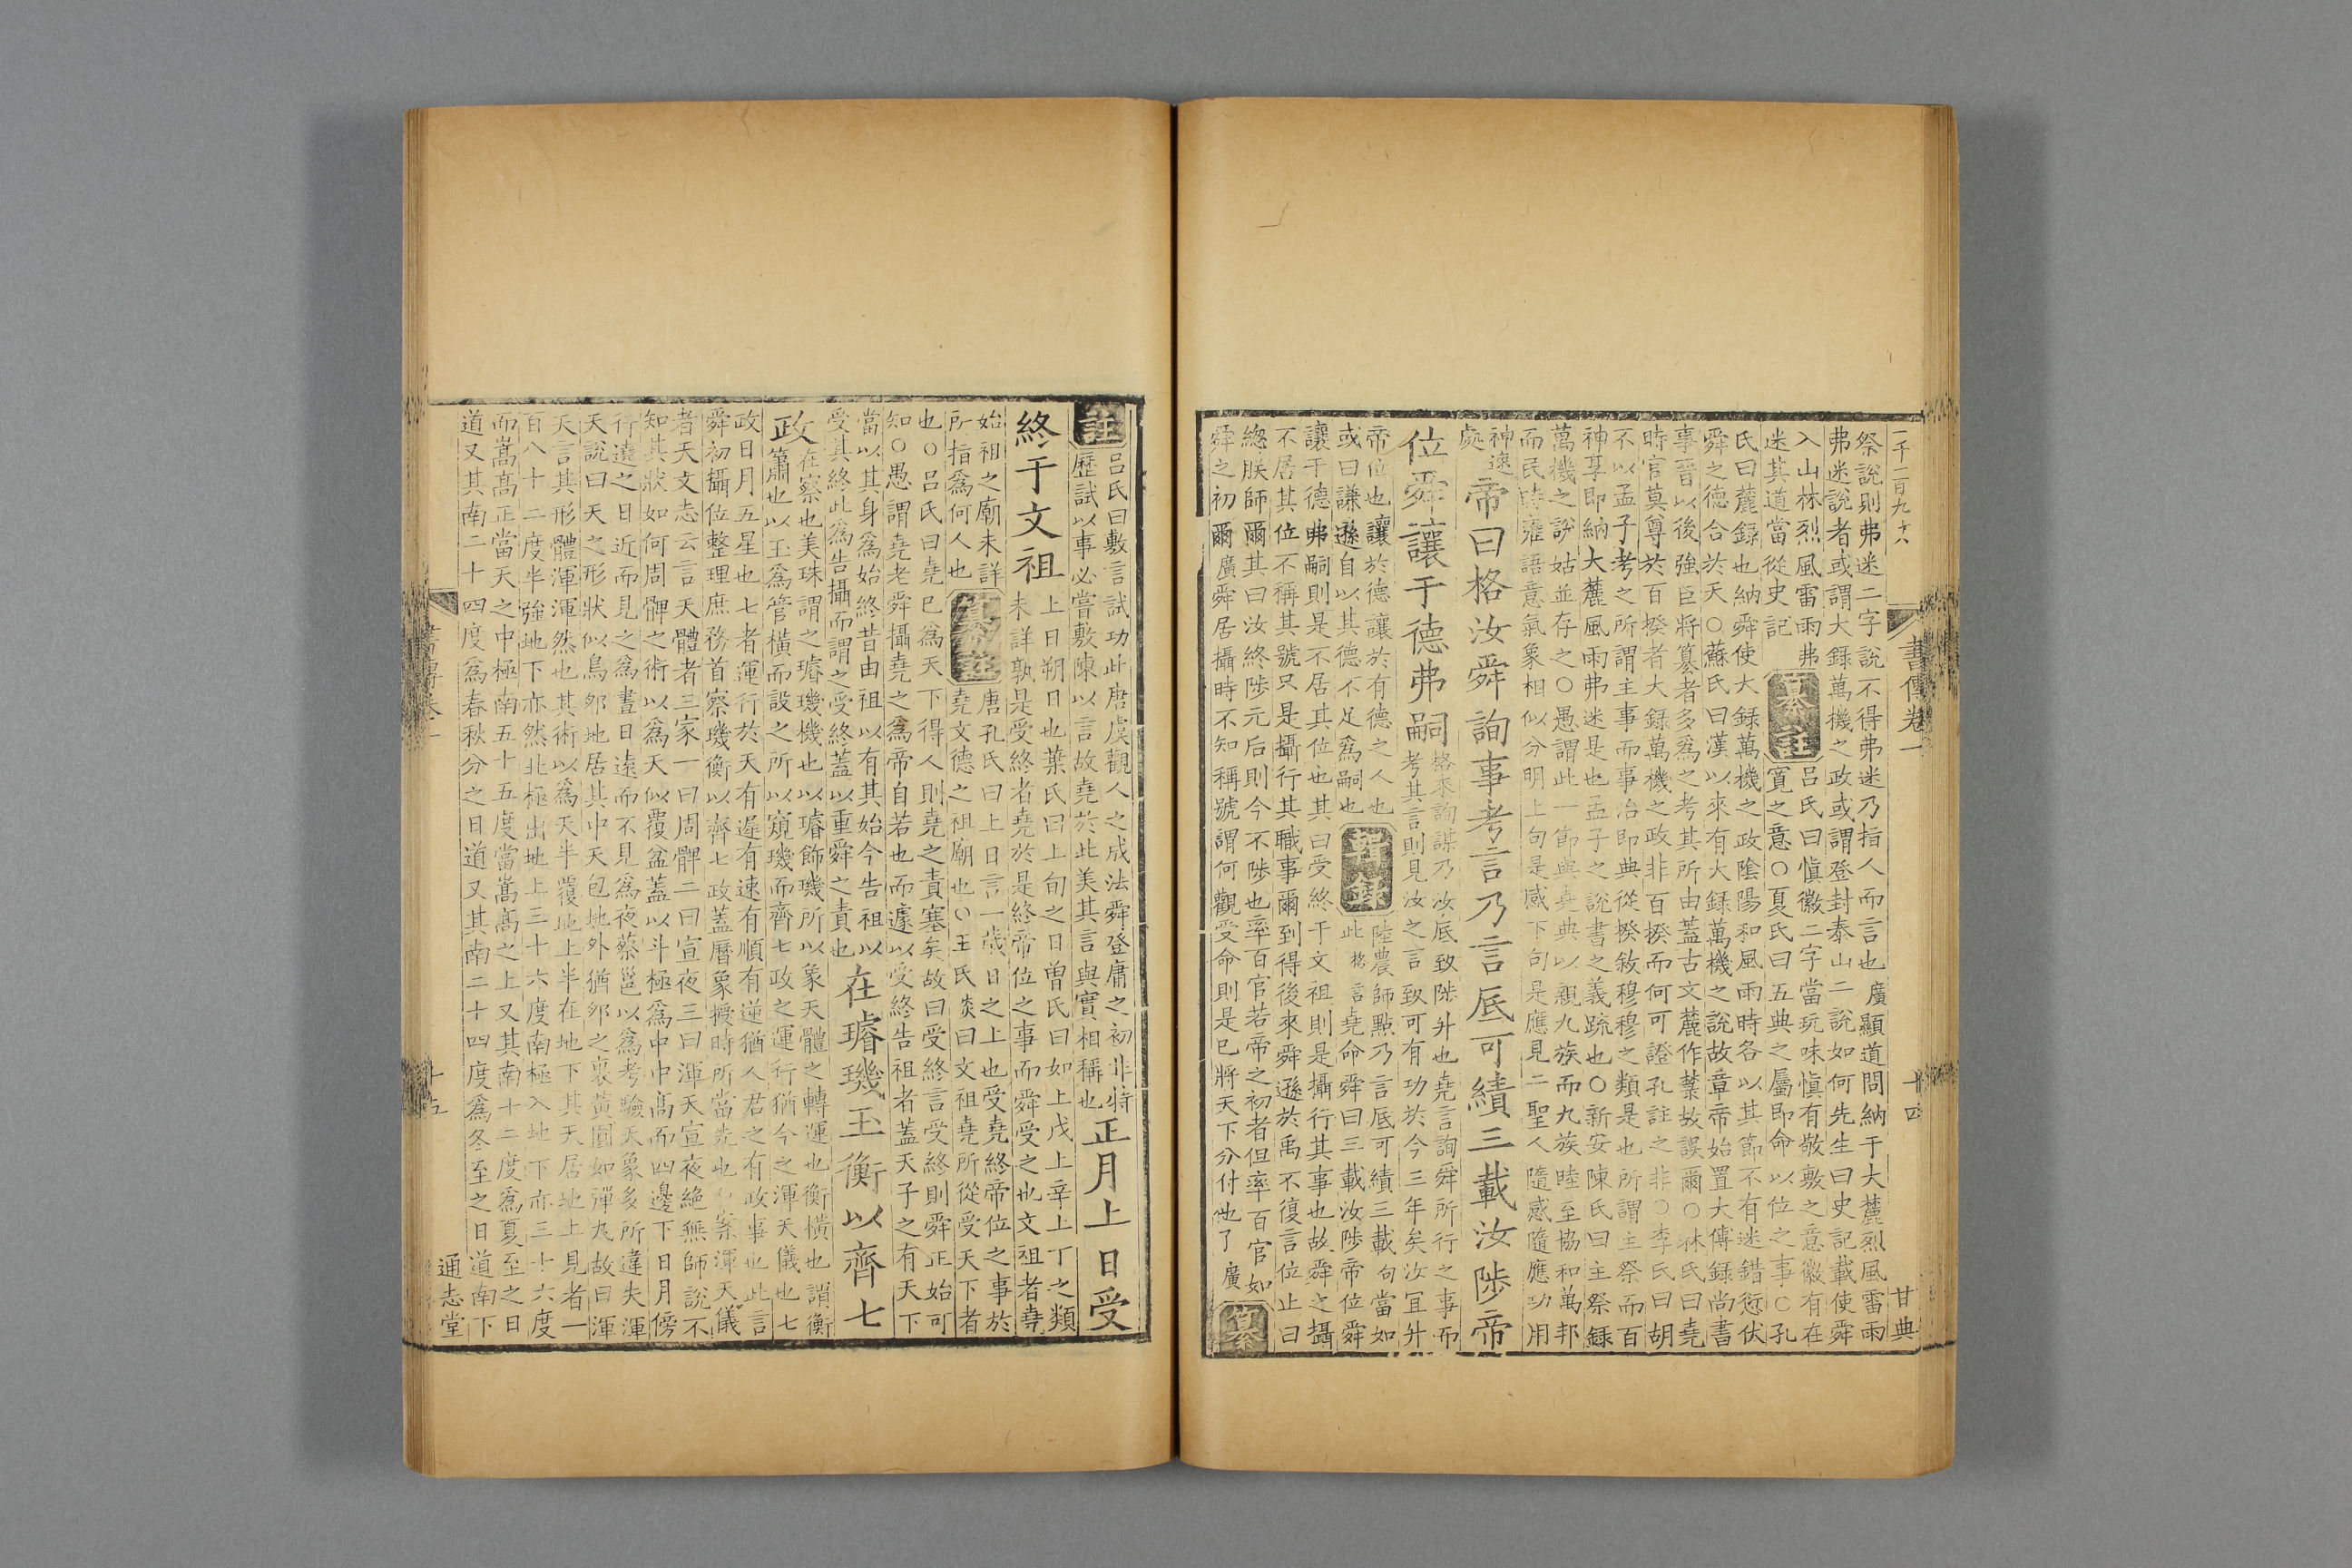 一千一百九十六
書傳卷一
十四
甘典
祭說則弗迷二字說不得弗迷乃指人而言也廣顯道問納于大麓烈風雷雨
弗迷說者或謂大錄萬機之政或謂登封泰山二說如何先生曰史記載使舜
入山林烈風雷雨弗
迷其道當從史記
纂註
呂氏曰愼徽二字當玩味愼有敬敷之意徽有在
寬之意○夏氏曰五典之屬即命以位之事○孔
氏曰麓錄也納舜使大錄萬機之政陰陽和風雨時各以其節不有迷錯愆伏
舜之德合於天○蘇氏曰漢以來有大錄萬機之說故章帝始置大傅錄尚書
事晉以後強臣將簒者多爲之考其所由蓋古文麓作𣏗故誤爾○林氏曰堯
時官莫尊於百揆者大錄萬機之政非百揆而何可證孔註之非○李氏曰胡
不以孟子考之所謂主事而事治即典從揆敘穆穆之類是也所謂主祭而百
神享即納大麓風雨弗迷是也孟子之說書之義疏也○新安陳氏曰主祭録
萬機之說姑並存之○愚謂此一節與堯典以親九族而九族睦至協和萬邦
而民時雍語意氣象相似分明上句是感下句是應見二聖人隨感隨應功用
神速
處
帝曰格汝舜詢事考言乃言厎可績三載汝陟帝
位舜讓于德弗嗣
格來詢謀乃汝厎致陟升也堯言詢舜所行之事而
考其言則見汝之言致可有功於今三年矣汝宜升
帝位也讓於德讓於有德之人也
或曰謙遜自以其德不足爲嗣也
輯錄
陸農師點乃言厎可績三載句當如
此格言堯命舜曰三載汝陟帝位舜
讓于德弗嗣則是不居其位也其曰受終于文祖則是攝行其事也故舜之攝
不居其位不稱其號只是攝行其職事爾到得後來舜遜於禹不復言位止曰
緫朕師爾其曰汝終陟元后則今不陟也率百官若帝之初者但率百官如
舜之初爾廣舜居攝時不知稱號謂何觀受命則是已將天下分付他了廣
纂
註
呂氏曰敷言試功此唐虞觀人之成法舜登庸之初非特
歷試以事必嘗敷陳以言故堯於此美其言與實相稱也
正月上日受
終于文祖
上日朔日也葉氏曰上旬之日曾氏曰如上戊上辛上丁之類
未詳孰是受終者堯於是終帝位之事而舜受之也文祖者堯
始祖之廟未詳
所指爲何人也
纂註
唐孔氏曰上日言一歲日之上也受堯終帝位之事於
堯文德之祖廟也○王氏炎曰文祖堯所從受天下者
也○呂氏曰堯已爲天下得人則堯之責塞矣故曰受終言受終則舜正始可
知○愚謂堯老舜攝堯之爲帝自若也而遽以受終告祖者蓋天子之有天下
當以其身爲始終昔由祖以有其始今告祖以
受其終此爲告攝而謂之受終蓋以重舜之責也
在璿璣玉衡以齊七
政
在察也美珠謂之璿璣機也以璿飾璣所以象天體之轉運也衡橫也謂衡
簫也以玉爲管橫而設之所以窺璣而齊七政之運行猶今之渾天儀也七
政日月五星也七者運行於天有遲有速有順有逆猶人君之有政事也此言
舜初攝位整理庶務首察璣衡以齊七政蓋曆象授時所當先也案渾天儀
者天文志云言天體者三家一曰周髀二曰宣夜三曰渾天宣夜絕無師說不
知其狀如何周髀之術以爲天似覆盆蓋以斗極爲中中高而四邊下日月傍
行遶之日近而見之爲晝日遠而不見爲夜蔡邕以爲考驗天象多所違失渾
天說曰天之形狀似鳥卵地居其中天包地外猶卵之裏黃圓如彈丸故曰渾
天言其形體渾渾然也其術以爲天半覆地上半在地下其天居地上見者一
百八十二度半強地下亦然北極出地上三十六度南極入地下亦三十六度
而嵩高正當天之中極南五十五度當嵩高之上又其南十二度爲夏至之日
道又其南二十四度爲春秋分之日道又其南二十四度爲冬至之日道南下
書傳卷一
十五
通志堂